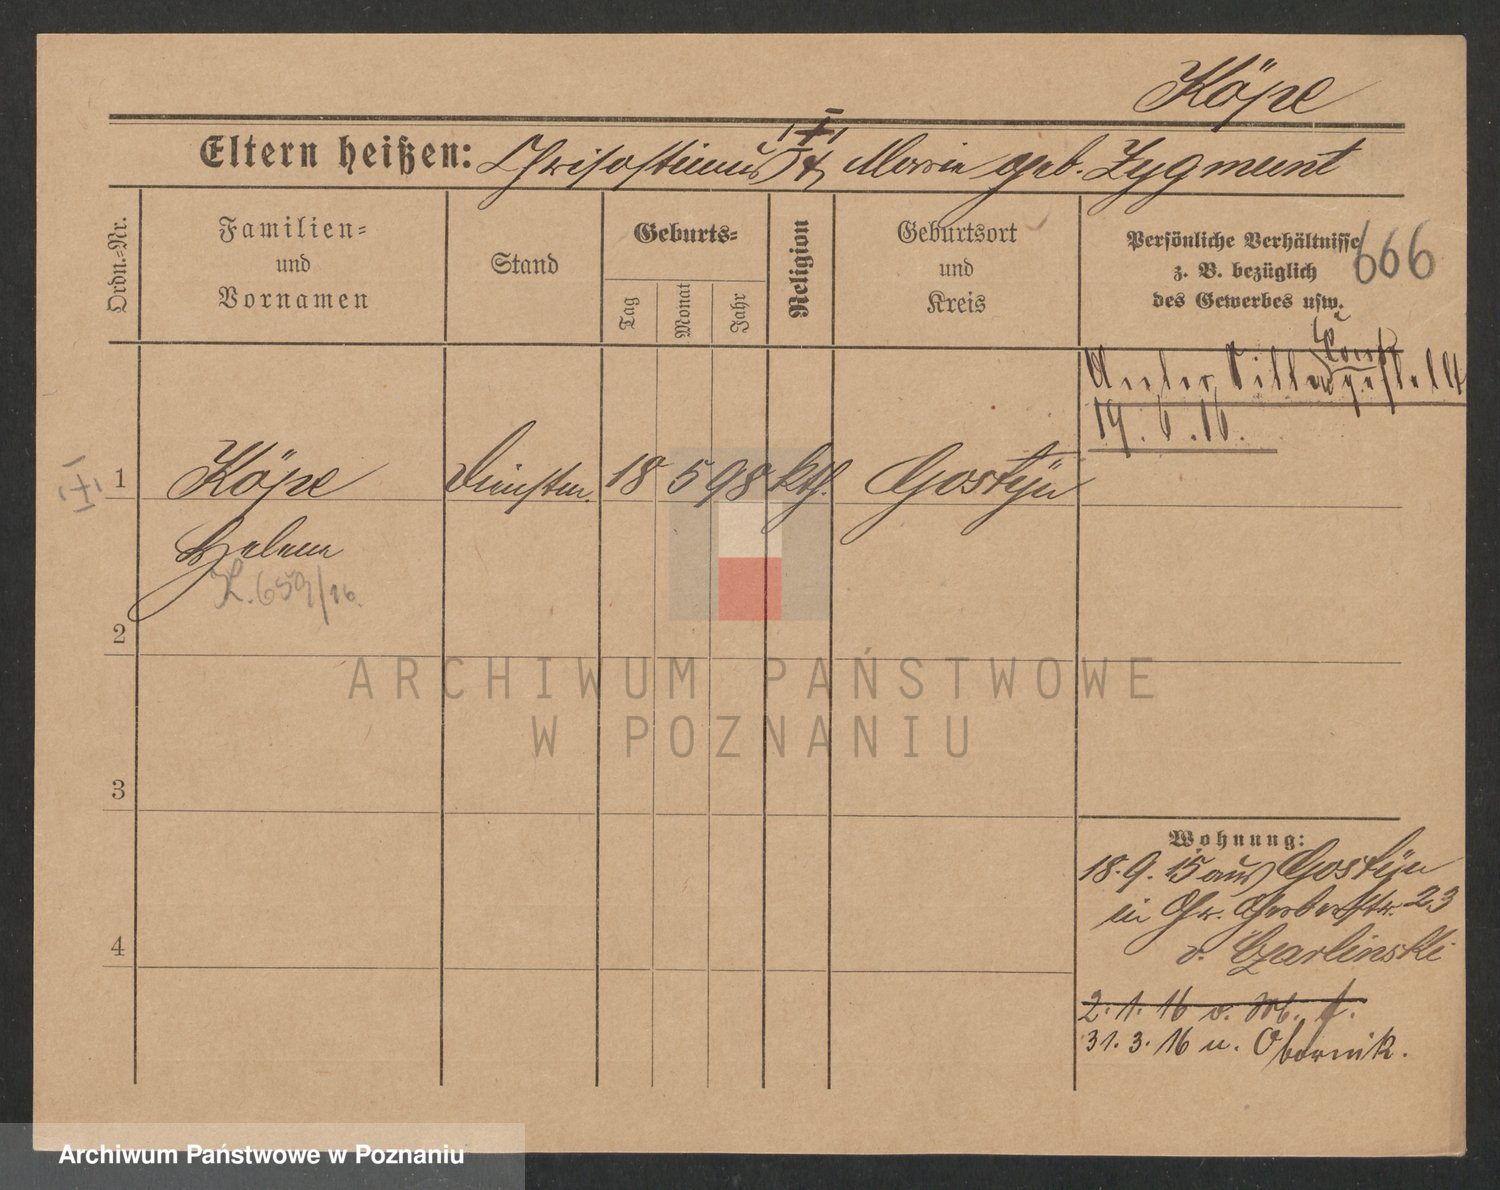 Köpe
Eltern heißen: Chrisostimus & Marie geb. Zygmunt
Ordn.-Nr.
Familien-
und
Vornamen
Stand
Geburts-
Tag
Monat
Jahr
Religion
Geburtsort
und
Kreis
Persönliche Verhältnisse
z. B. bezüglich
des Gewerbes usw.
666
Unter
19. 6. 16.
1 Köpe Dienstm. 18 5 98 kth. Gostÿn
Helene
K. 659/16.
2
3
4
ARCHIWUM PAŃSTWOWE
W POZNANIU
Wohnung:
18. 9. 15 aus Gostÿn
in Gr. Gerberstr. 23
v. Czarlinski
2. 1. 16 v.
31. 3. 16 n. Obornik.
Archiwum Państwowe w Poznaniu